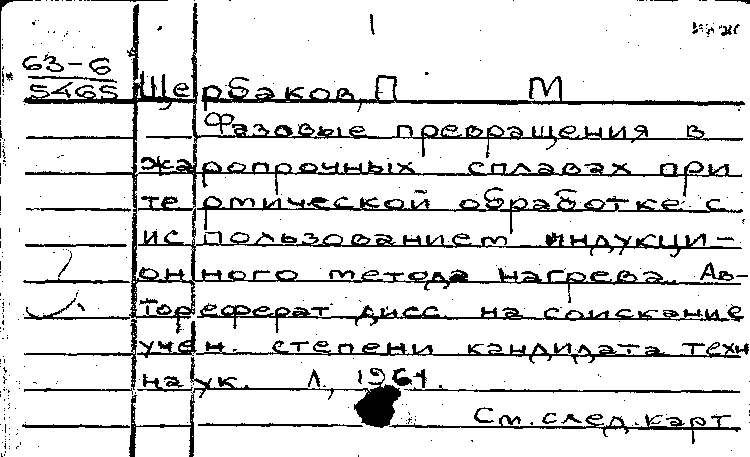 63-6
5465
Щербаков, П М
Фазовые превращения в
жаропрочных сплавах при
термической обработке с
использованием индукци-
онного метода нагрева. Ав-
тореферат дисс. на соискание
учен. степени кандидата техн
наук. Л, 1961.
См. след. карт